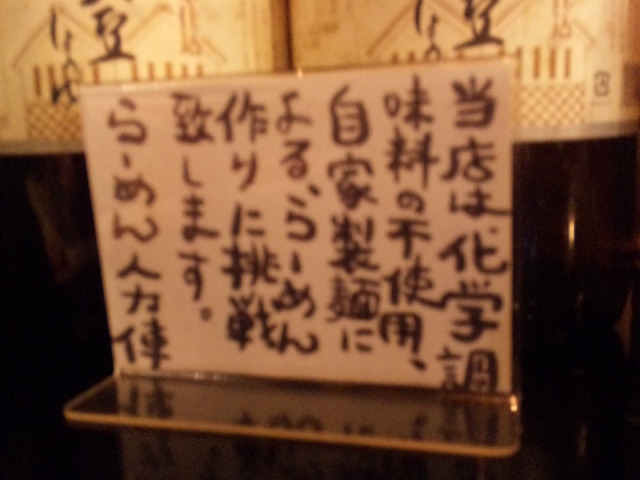 当店は、化学調
味料の不使用、
自家製麺に
よる、らーめん
作りに挑戦
致します。
らーめん人力俥